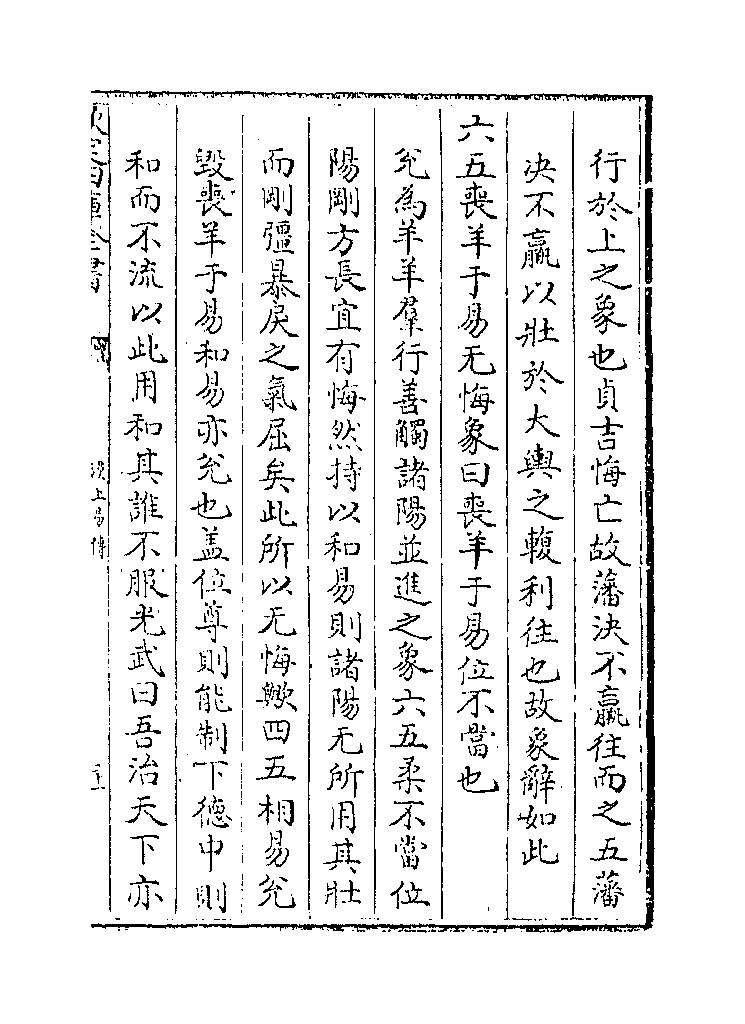 行於上之象也貞吉悔亡故藩決不羸往而之五藩
决不羸以壯於大輿之輹利往也故象辭如此
六五喪羊于易无悔象曰喪羊于易位不當也
兊為羊羊羣行善觸諸陽並進之象六五柔不當位
陽剛方長宜有悔然持以和易則諸陽无所用其壯
而剛彊暴戾之氣屈矣此所以无悔歟四五相易兊
毀喪羊于易和易亦兊也盖位尊則能制下德中則
和而不流以此用和其誰不服光武曰吾治天下亦
欽定四庫全書
漢上易傳